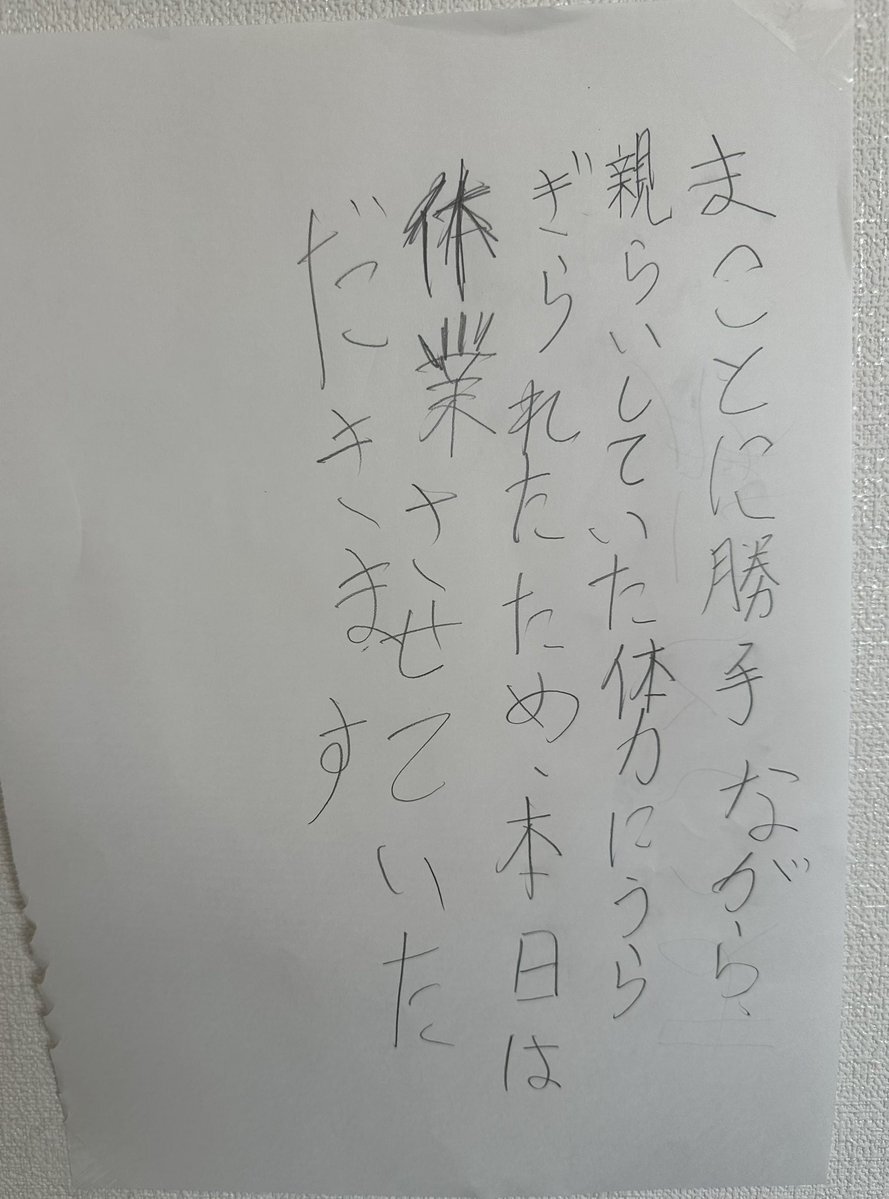 まことに勝手ながら、
親らいしていた体力にうら
ぎられたため、本日は
休業させていた
だきます